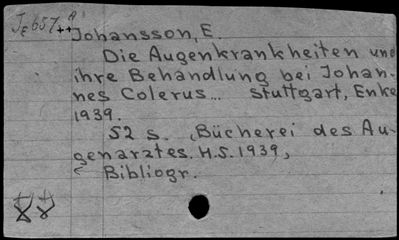 Johansson, E.
Die Augenkrankheiten und
ihre Behandlung bei Johan-
nes Colerus... Stuttgart, Enke
1939.
52 s. (Bücherei des Au-
genarztes. H.5. 1939)
Bibliogr.